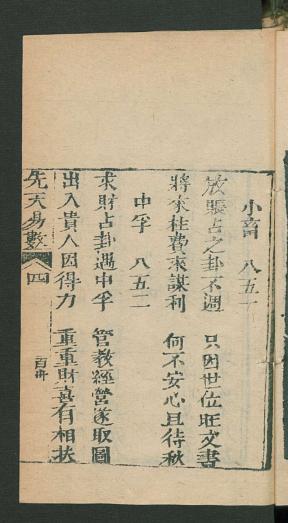 小畜 八五一
放賬占之卦不遇 只因世位旺文書
將來枉費來謀利 何不安心且待秋
中孚 八五二
求財占卦遇中孚 管教經營遂取圖
出入貴人因得力 重重財喜有相扶
先天易數 八 四 百卅